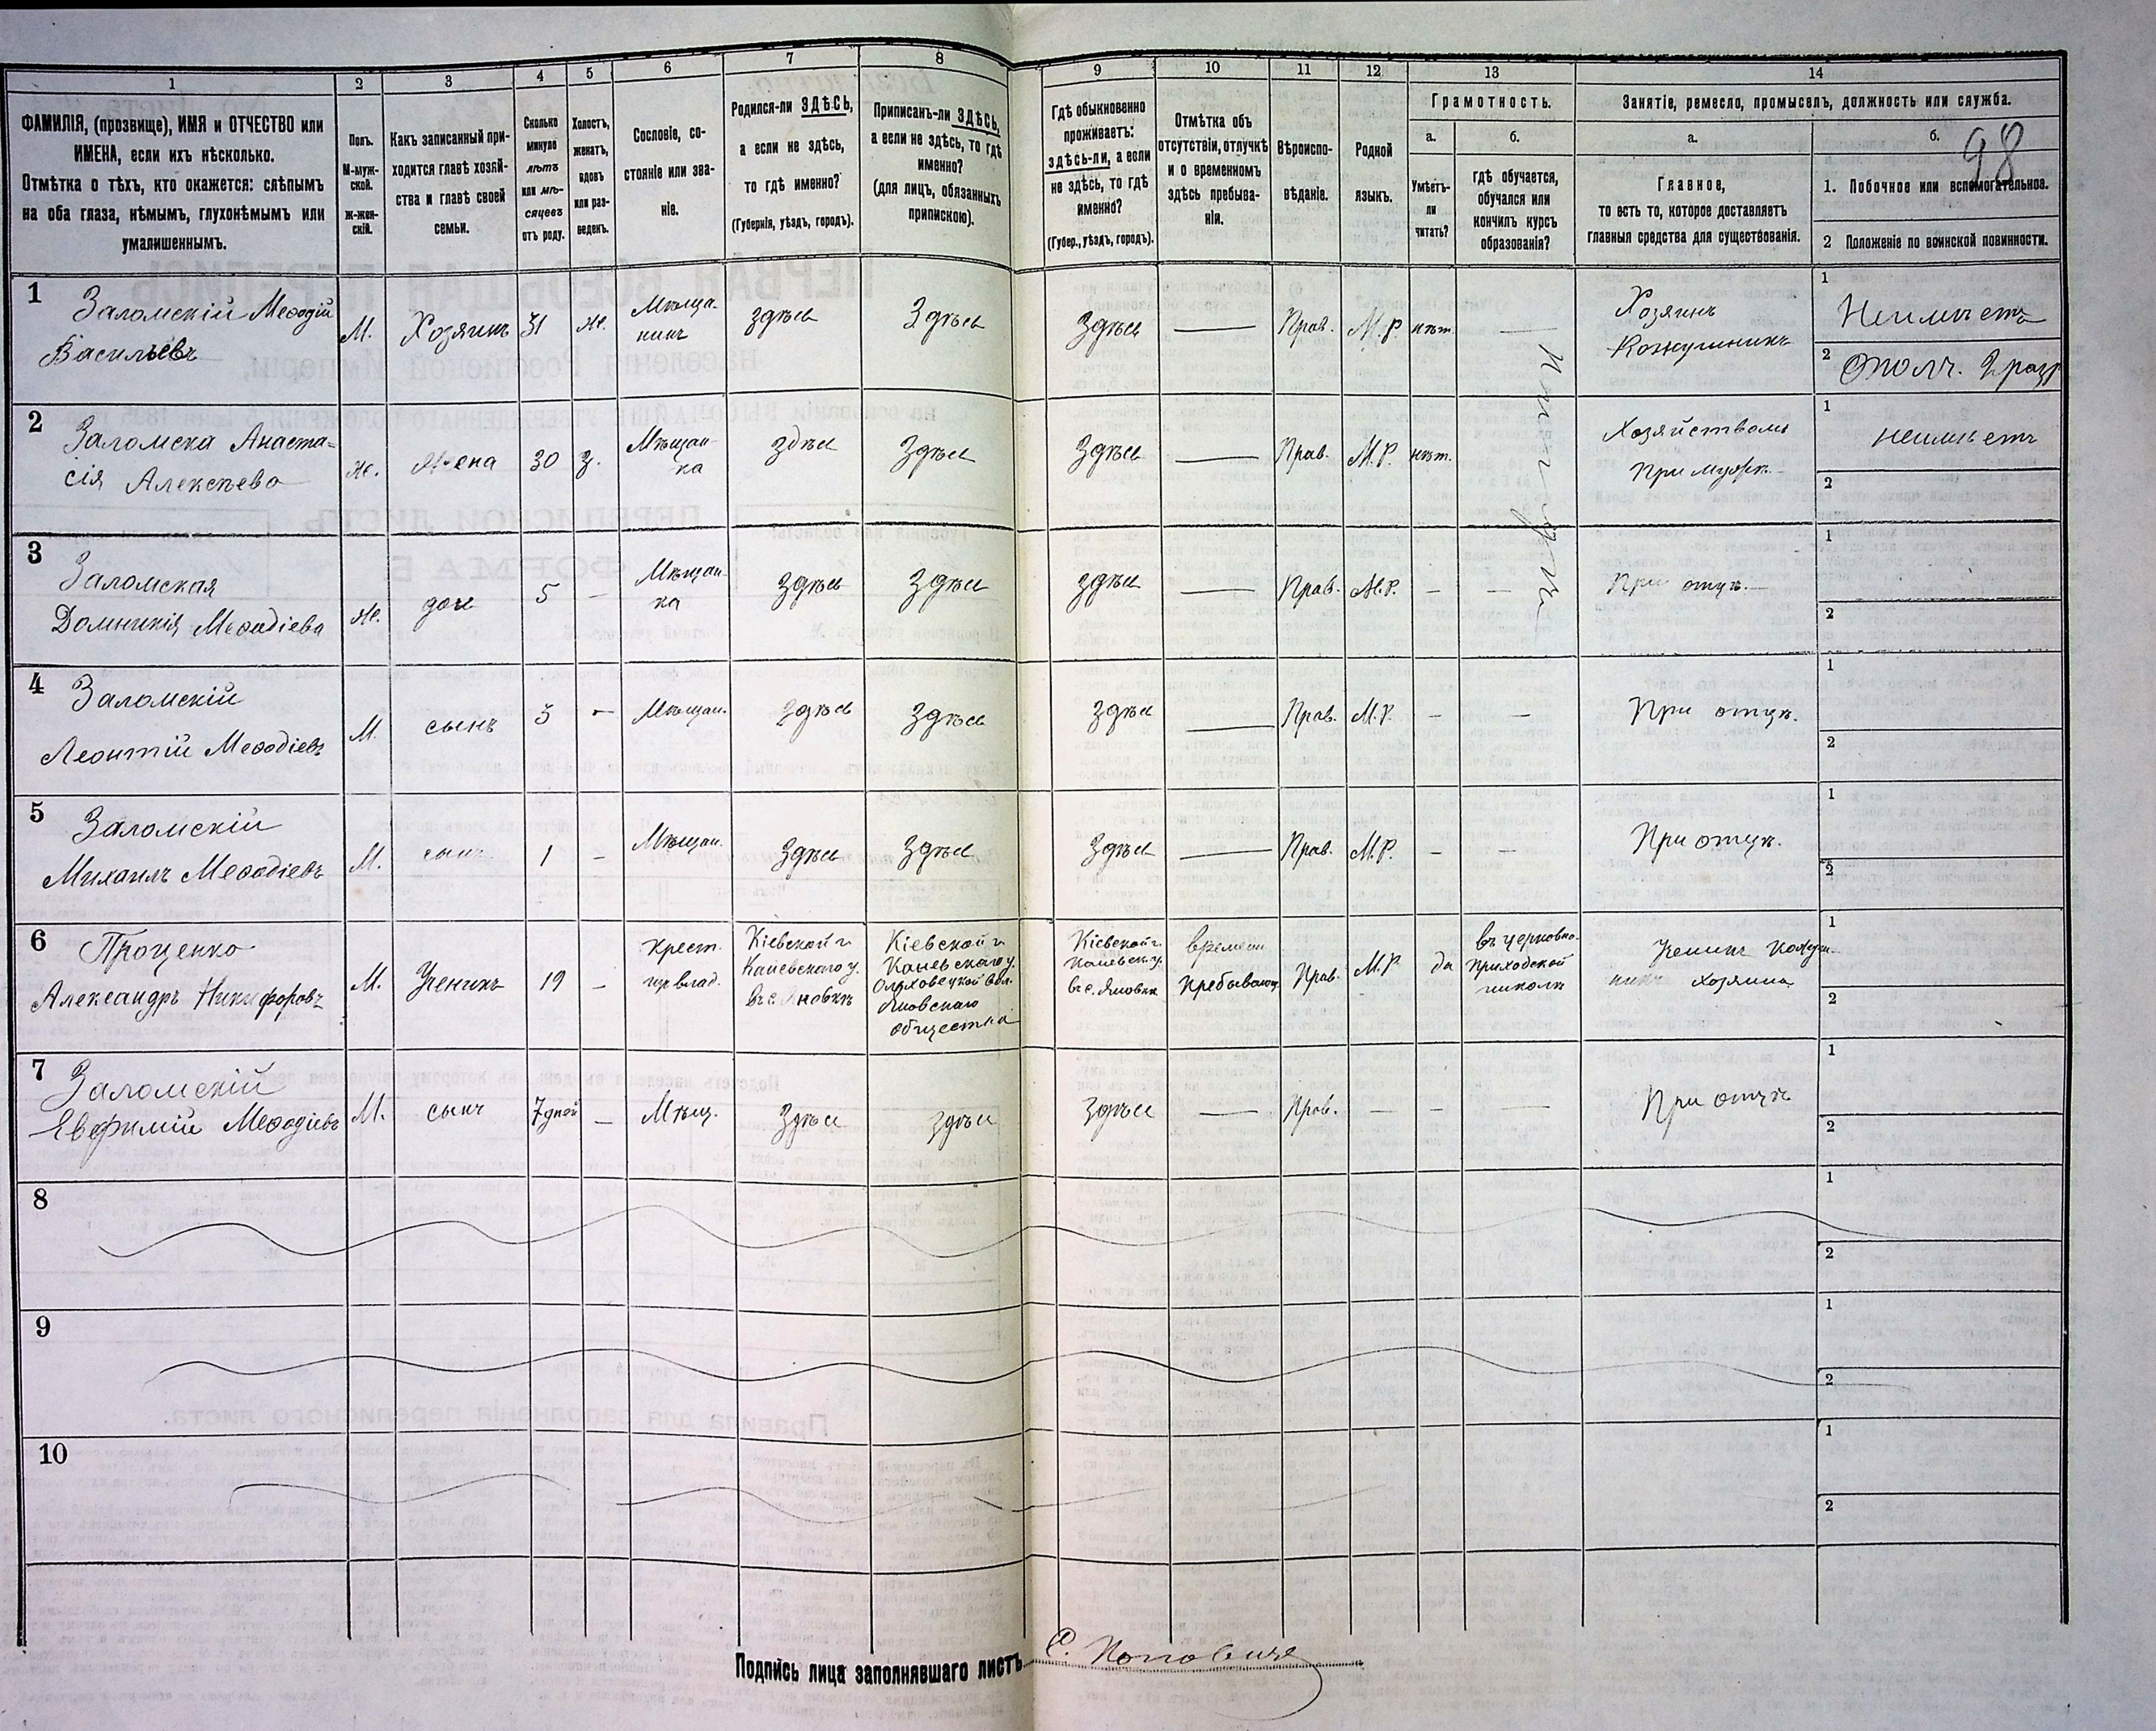 1 2 3 4 5 6 7 8 9 10 11 12 13 14
ФАМИЛІЯ, (прозвище), ИМЯ и ОТЧЕСТВО или
ИМЕНА, если ихъ нѣсколько.
Отмѣтка о тѣхъ, кто окажется: слѣпымъ
на оба глаза, нѣмымъ, глухонѣмымъ или
умалишеннымъ.
Полъ.
М-муж-
ской.
Ж-жен-
скій.
Какъ записанный при-
ходится главѣ хозяй-
ства и главѣ своей
семьи.
Сколько
минуло
лѣтъ
или мѣ-
сяцевъ
отъ роду.
Холостъ,
женатъ,
вдовъ
или раз-
веденъ.
Сословіе, со-
стояніе или зва-
ніе.
Родился-ли ЗДѢСЬ,
а если не здѣсь,
то гдѣ именно?
(Губернія, уѣздъ, городъ).
Приписанъ-ли ЗДѢСЬ,
а если не здѣсь, то гдѣ
именно?
(для лицъ, обязанныхъ
припискою).
Гдѣ обыкновенно
проживаетъ:
здѣсь-ли, а если
не здѣсь, то гдѣ
именно?
(Губер., уѣздъ, городъ).
Отмѣтка объ
отсутствіи, отлучкѣ
и о временномъ
здѣсь пребыва-
ніи.
Вѣроиспо-
вѣданіе.
Родной
языкъ.
Грамотность.
а.
Умѣетъ-
ли
читать?
б.
гдѣ обучается,
обучался или
кончилъ курсъ
образованія?
Занятіе, ремесло, промыселъ, должность или служба.
а.
Главное,
то есть то, которое доставляетъ
главныя средства для существованія.
б.
98
1. Побочное или вспомогательное.
2 Положеніе по воинской повинности.
1
Заломскій Меѳодій
Васильевъ
М.
Хозяинъ
31
Ж.
Мѣща-
нинъ
здѣсь
Здѣсь
Здѣсь
—
Прав.
М.Р.
нѣт.
—
Хозяинъ
Кожушникъ
1
Неимѣетъ
2
Ополч. 2 разр
2
Заломска Анаста-
сія Алексѣева
Ж.
Жена
30
З.
Мѣщан-
ка
здѣсь
Здѣсь
Здѣсь
—
Прав.
М.Р.
нѣт.
Хозяйствомъ
При мужѣ
1
неимѣетъ
2
3
Заломская
Домникія Меѳодіева
Ж.
доч
5
—
Мѣщан-
ка
Здѣсь
Здѣсь
здѣсь
—
Прав.
М.Р.
—
—
При отцѣ.
1
2
4
Заломскій
Леонтій Меѳодіевъ
М.
сынъ
3
—
Мѣщан.
Здѣсь
Здѣсь
Здѣсь
—
Прав.
М.Р.
—
—
При отцѣ.
1
2
5
Заломскій
Михаилъ Меѳодіевъ
М.
сынъ
1
—
Мѣщан.
Здѣсь
Здѣсь
Здѣсь
—
Прав.
М.Р.
—
—
При отцѣ.
1
2
6
Проценко
Александръ Никифоровъ
М.
Ученикъ
19
—
крест.
Кіевской г.
Каневскаго у.
въ с. Яновкѣ
Кіевской г.
Каневскаго у.
Ольховецкой вол.
Яновскаго
общества
Кіевской г.
Каневск. у.
въ с. Яновкѣ
времен.
пребывающ.
Прав.
М.Р.
да
въ церковно-
приходской
школѣ
Ученикъ кожуш-
никъ хозяина
1
2
7
Заломскій
Евфимій Меѳодіевъ
М.
сынъ
7 дней
—
Мѣщ.
Здѣсь
здѣсь
здѣсь
—
Прав.
—
—
—
При отцѣ
1
2
8
1
2
9
1
2
10
1
2
Подпись лица заполнявшаго листъ
С. Поповичъ